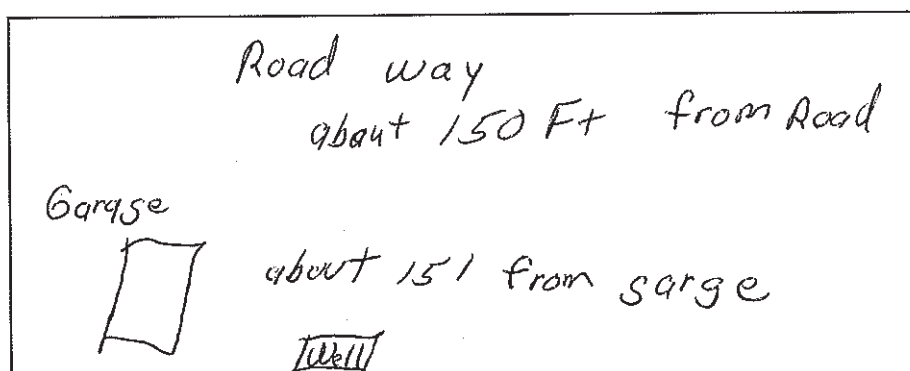 Road way
about 150 Ft from Road
Garage
about 15' from garge
Well